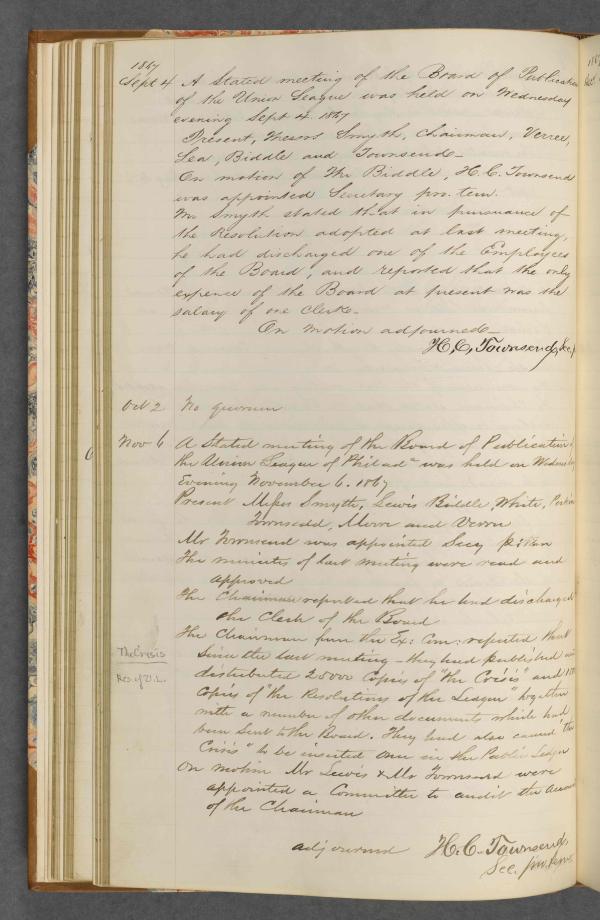 1867
Sept 4 A Stated meeting of the Board of Publication
of the Union League was held on Wednesday
evening Sept 4. 1867
Present, Messrs Smyth, Chairman, Verree,
Lea, Biddle and Townsend—
On motion of Mr Biddle, H. C. Townsend
was appointed Secretary pro. tem.
Mr Smyth stated that in pursuance of
the Resolution adopted at last meeting,
he had discharged one of the Employees
of the Board, and reported that the only
expence of the Board at present was the
salary of one Clerk—
On motion adjourned—
H, C, Townsend, Sec,
Oct 2 No quorum
6
Nov 6 A Stated meeting of the Board of Publication
the Union League of Philada was held on
Evening November 6. 1867
Present Messrs Smyth, Lewis Biddle, White,
Townsend, and
Mr Townsend was appointed Secy p: tem
The minutes of last meeting were read and
approved
The Chairman reported that he had discharged
the Clerk of the Board
The Chairman from the Ex: Com: reported that
Since the last meeting — they had published
distributed 25000 Copies of "the Crisis" and
The Crisis
Copies of "the Resolutions of the League" together
Res. of U.L.
with a number of other documents which had
been Sent to the Board. They had also caused "the
Crisis" to be inserted once in the Public Ledger
On motion Mr Lewis & Mr Townsend were
appointed a Committee to audit the
of the Chairman
adjourned H. C. Townsend,
Sec. pro. tem.